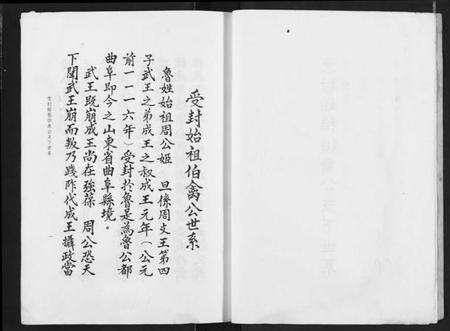 受封始祖伯禽公世系
魯姓始祖周公姬 旦係周文王第四
子武王之弟成王之叔成王元年(公元
前一一一六年)受封於魯是為魯公都
曲阜即今之山東省曲阜縣境。
武王既崩成王尚在强葆 周公恐天
下聞武王崩而叛乃踐阼代成王攝政當